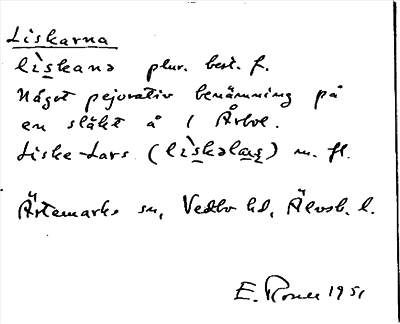 Liskarna
lìskanə plur. best. f.
Något pejorativ benämning på
en släkt å i Årbol.
Liske-Lars (lìskəlaʂ) m. fl.
Ärtemarks sn, Vedbo hd, Älvsb. l.
E. 1951